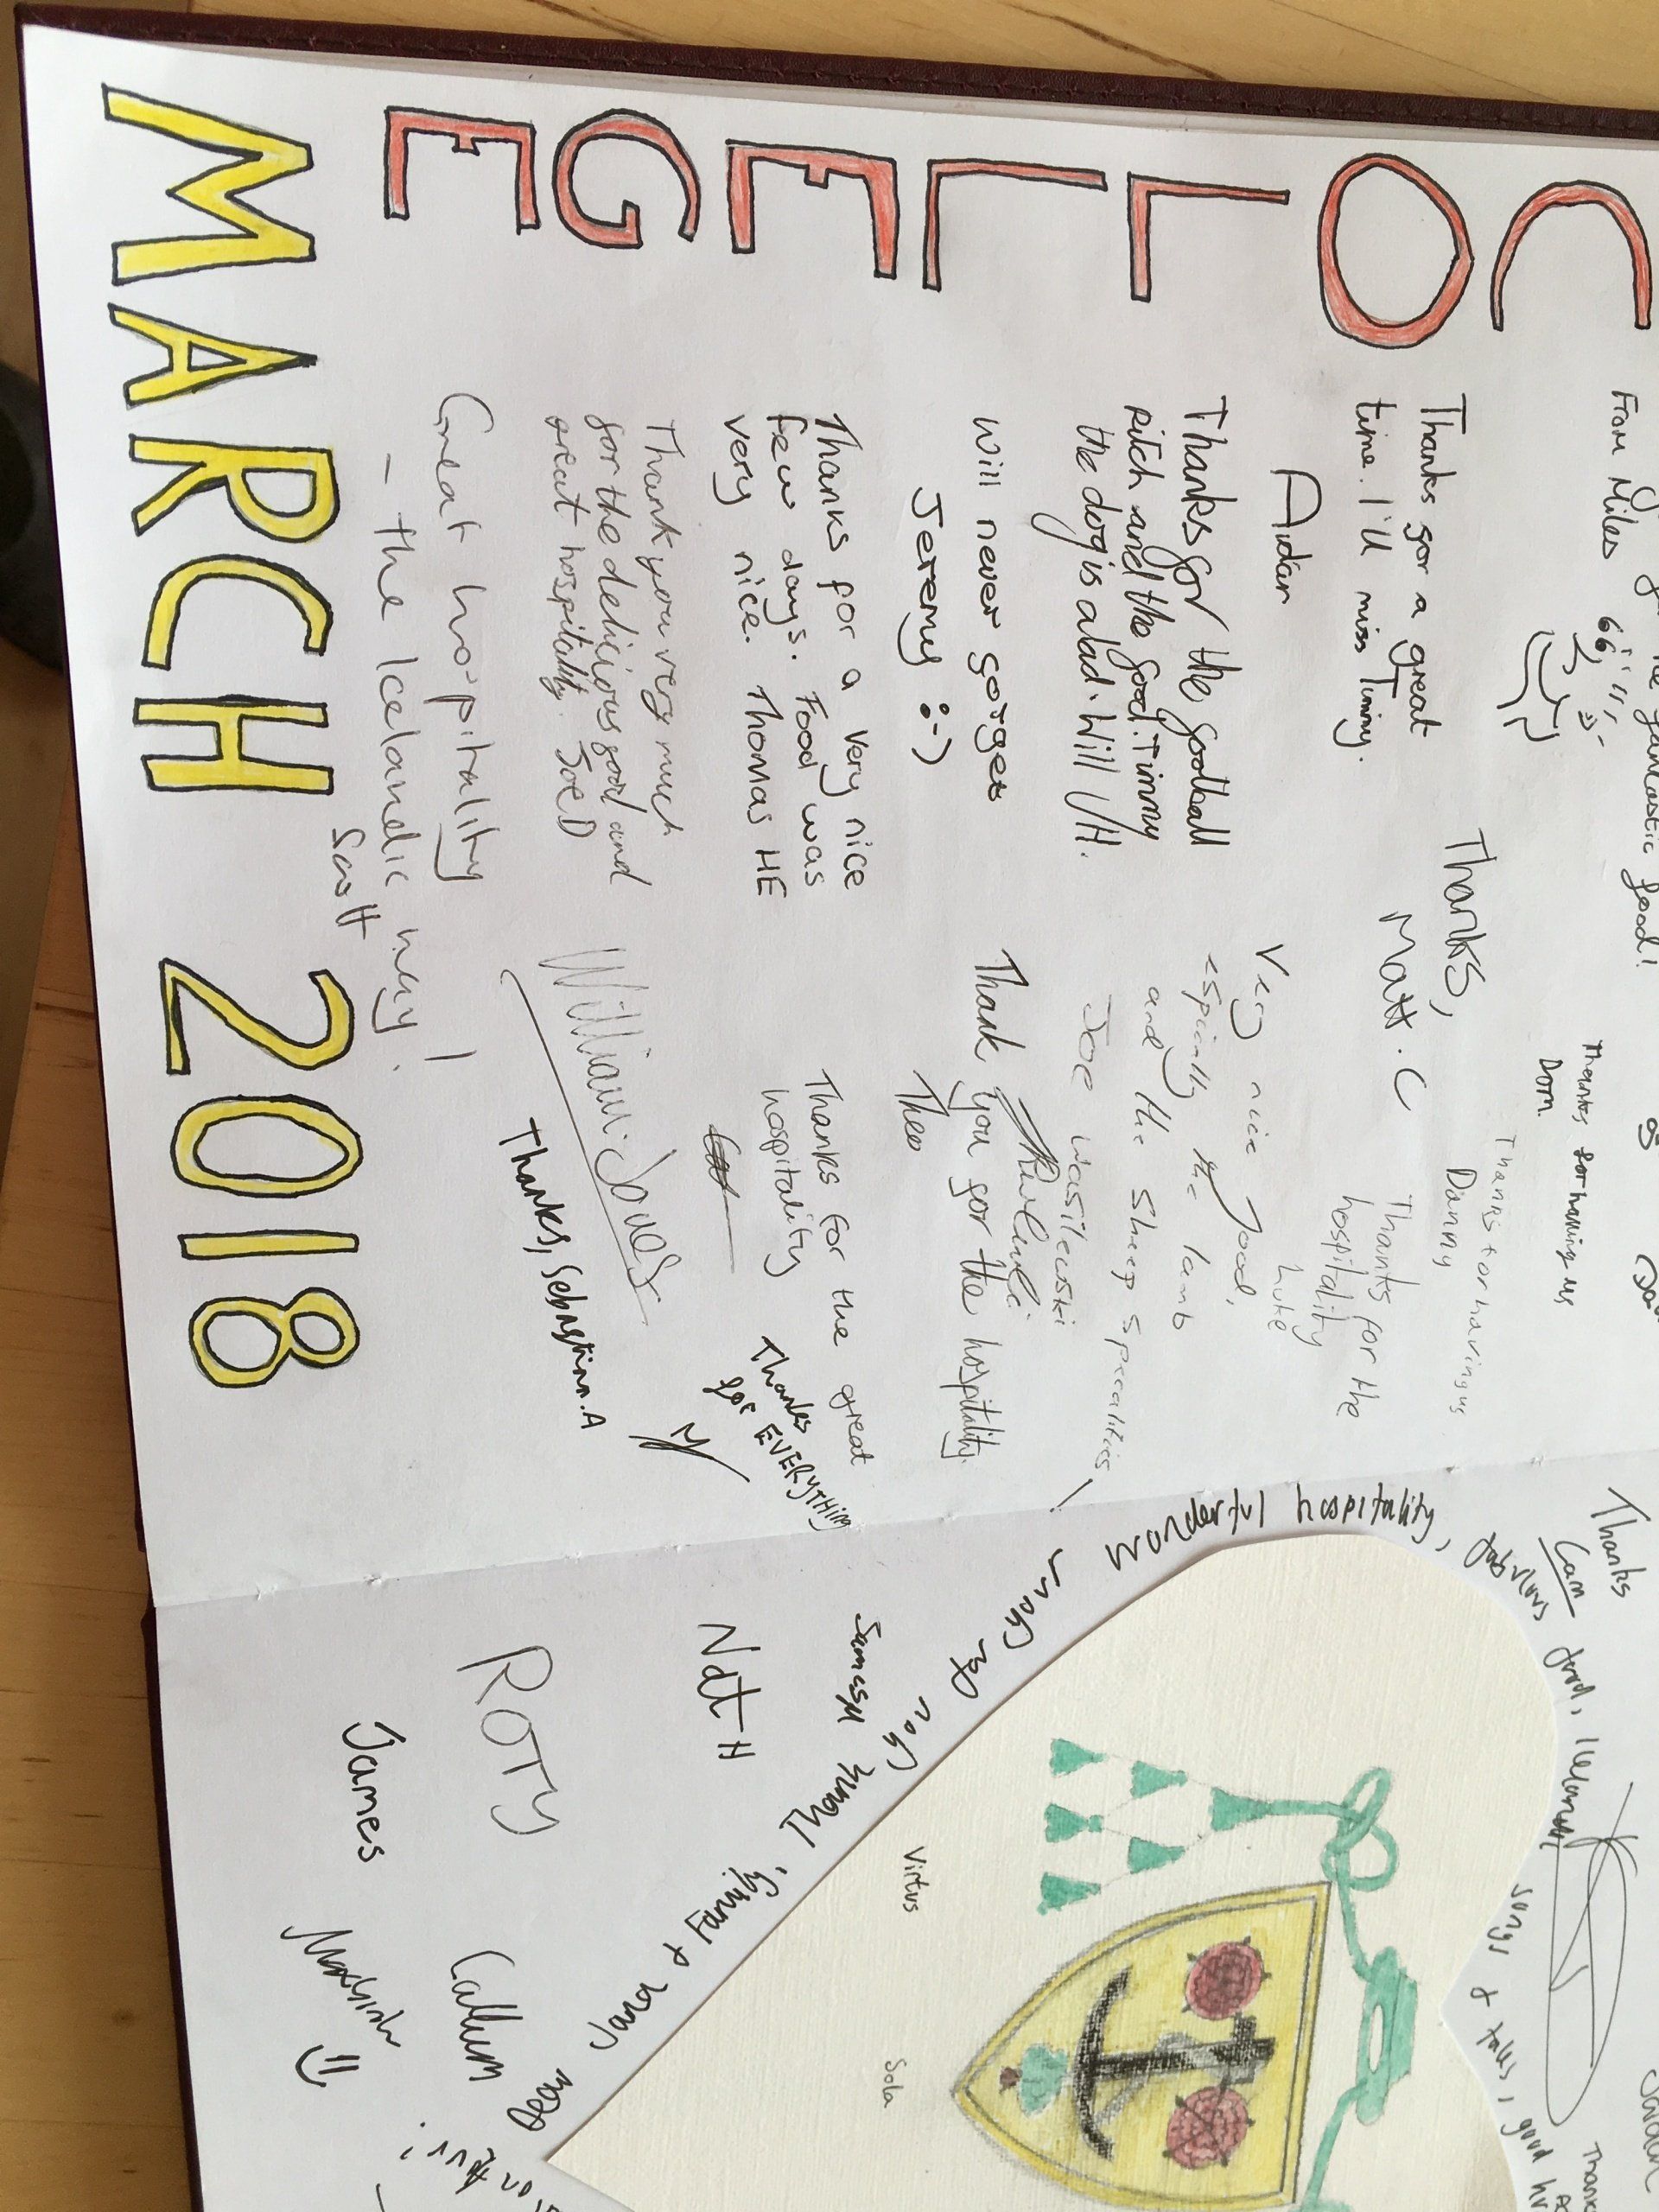 COLLEGE
MARCH 2018
fantastic food!
From Miles
Thanks for a great
time. I'll miss Timmy.
Aidan
Thanks,
Matt.C
Thanks for having us
Dom.
Thanks for having us
Danny
Thanks for the
hospitality
Luke
Thanks for the football
pitch and the food. Timmy
the dog is a lad. Will VH.
Very nice food,
espically the lamb
and the sheep specalities!
Joe Wasilewski
Will never forget
Jeremy :-)
Thank you for the hospitality.
Theo
Thanks for a very nice
few days. Food was
very nice. Thomas HE
Thanks for the great
hospitality
Thanks
for EVERYTHING
Thank you very much
for the delicious food and
great hospitality. Joe D
William Jones
Thanks, Sebastian.A
Great hospitality
- the Icelandic way!
Scott
Thanks
Cam
Wonderful hospitality, fabulous food, Icelandic songs & tales, good
Nat H
ROTY
James
Callum
& Family,
Virtus
Sola